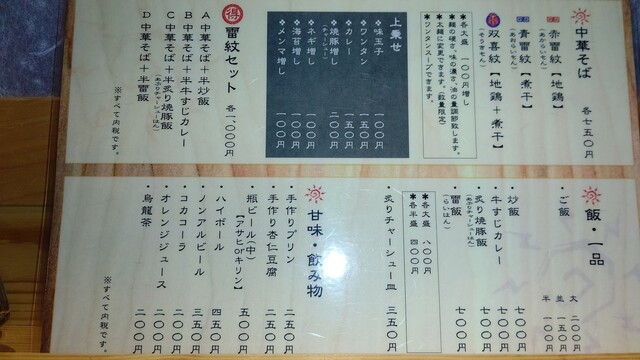 中華そば 各七五〇円
赤雷紋【地鶏】
(あからいもん)
青雷紋【煮干】
(あおらいもん)
双喜紋【地鶏+煮干】
(そうきもん)
＊各大盛 一〇〇円増し
＊麺の硬さ、味の濃さ、油の量調節致します。
＊太麺に変更できます。(数量限定)
＊ワンタンスープできます。
上乗せ
味玉子 一〇〇円
ワンタン 一五〇円
カレー 一五〇円
焼豚増し 二〇〇円
(チャーシュー)
ネギ増し 一〇〇円
海苔増し 一〇〇円
メンマ増し 一〇〇円
得 雷紋セット 各一、〇〇〇円
A 中華そば+半炒飯
B 中華そば+半牛すじカレー
C 中華そば+半炙り焼豚飯
(あぶりチャーシューはん)
D 中華そば+半雷飯
※すべて内税です。
飯・一品
・ご飯 大 二〇〇円
並 一五〇円
半 一〇〇円
・炒飯 七〇〇円
・牛すじカレー 七〇〇円
・炙り焼豚飯 七〇〇円
(あぶりチャーシューはん)
・雷飯 七〇〇円
(らいはん)
＊各大盛 八〇〇円
＊各半盛 四〇〇円
・炙りチャーシュー皿 三五〇円
甘味・飲み物
・手作りプリン 二五〇円
・手作り杏仁豆腐 二五〇円
・瓶ビール(中) 五〇〇円
【アサヒorキリン】
・ハイボール 四五〇円
・ノンアルビール 三五〇円
・コカコーラ 二〇〇円
・オレンジジュース 二〇〇円
・烏龍茶 二〇〇円
※すべて内税です。